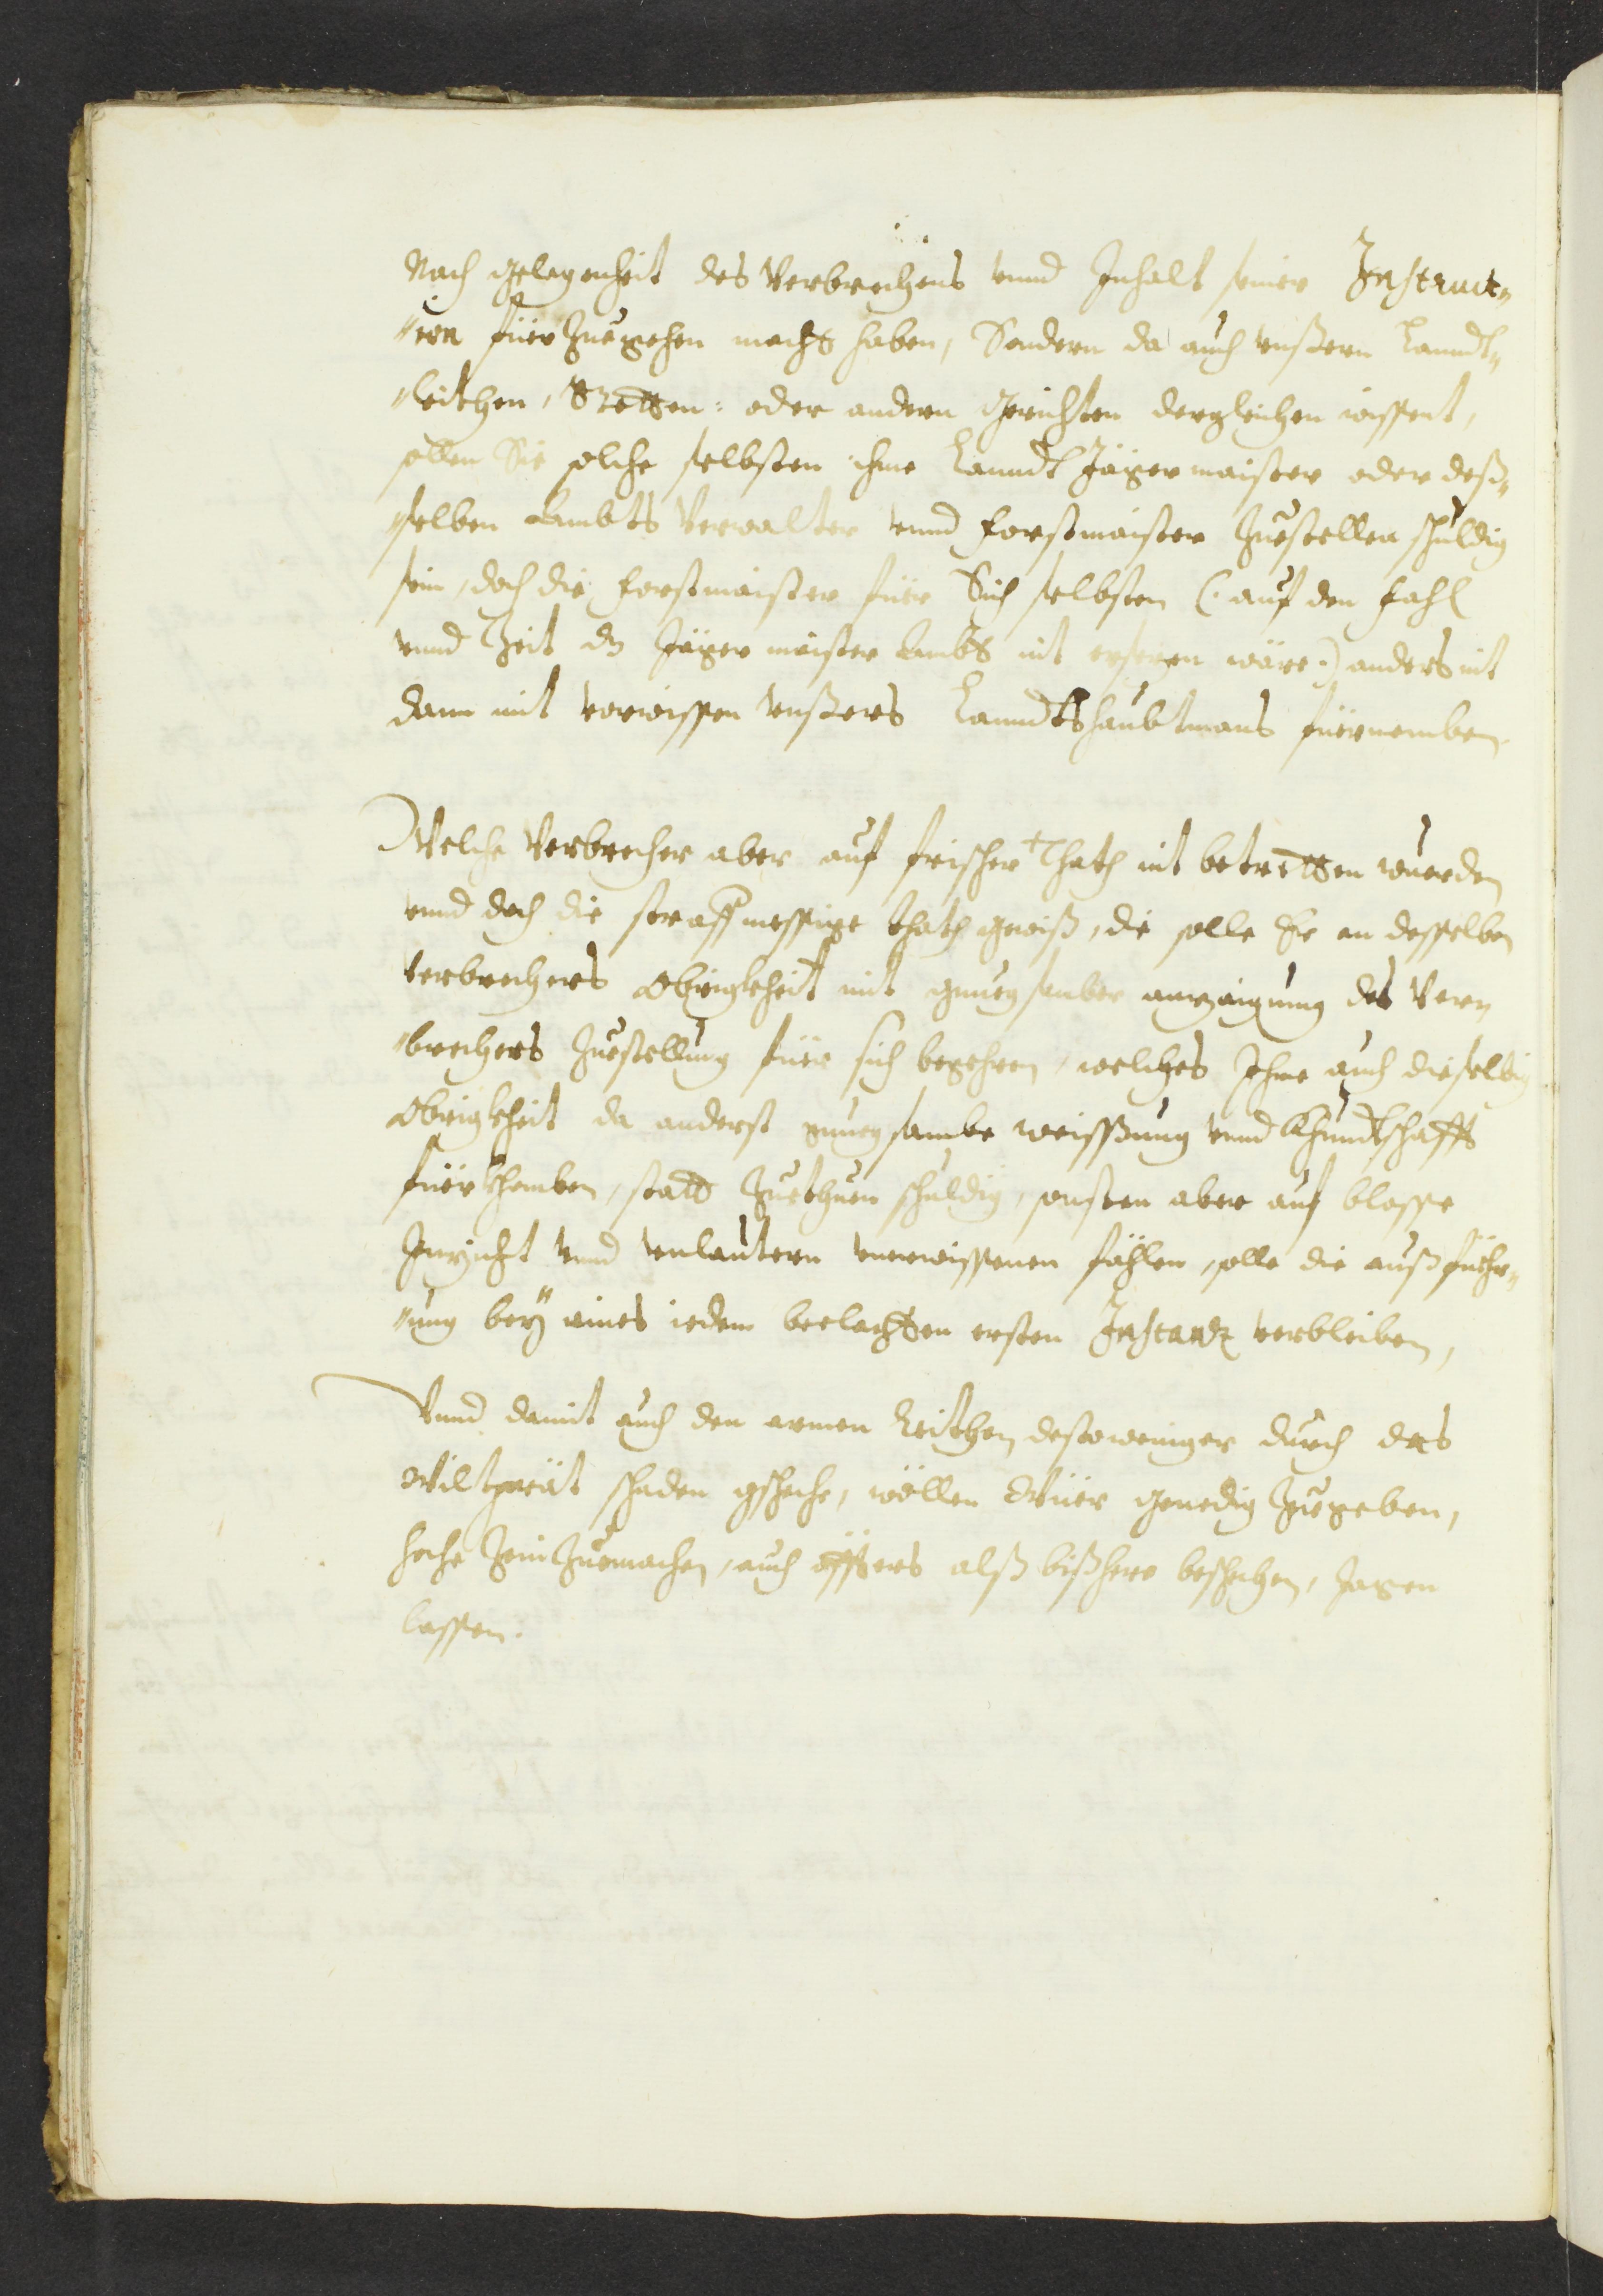 Nach gelegenheit des Verbrechens vnnd Inhalt seiner Instruct-
-ion füerzuegehen macht haben, Sondern da auch vnßern Lanndt-
-leithen, Stetten: oder andern gerichten dergleichen wissent,
sollen Sie solche selbsten ihme Lanndt Jägermaister oder deß-
-selben Ambts Verwalter vnnd Forstmaister zuestellen schuldig
sein, doch die Forstmaister füer Sich selbsten (: auf den Fahl
vnnd Zeit dz Jäger maister Ambt nit ersezen wäre :) anders nit
dann mit vorwissen vnßers Lanndtshaubtmans füernemben.
Welche Verbrecher aber auf frischer Thath nit betretten wuerden
vnnd doch die straffmessige thath gewiß, die solle Er an desselben
verbrechers Obrigkheit mit gnuegsamber anzaigung des Ver-
-brechers zuestellung füer sich begehren, welches Ihme auch dieselbig
Obrigkheit da anderst gnuegsambe weissßung vnnd Khundtschafft
füerkhomben, statt zuethuen schuldig, sonsten aber auf blosse
Inzicht vnnd vnlautern vnerwissenen fählen, solle die außfüehr-
-ung beÿ eines iedem beclagten ersten Instantz verbleiben,
Vnnd damit auch den armen Leithen destoweniger durch das
Wiltprät schaden gscheche, wöllen Wüer genedig zuegeben,
hoche Zein zuemachen, auch öffters alß bißhero beschechen, Jagen
lassen.